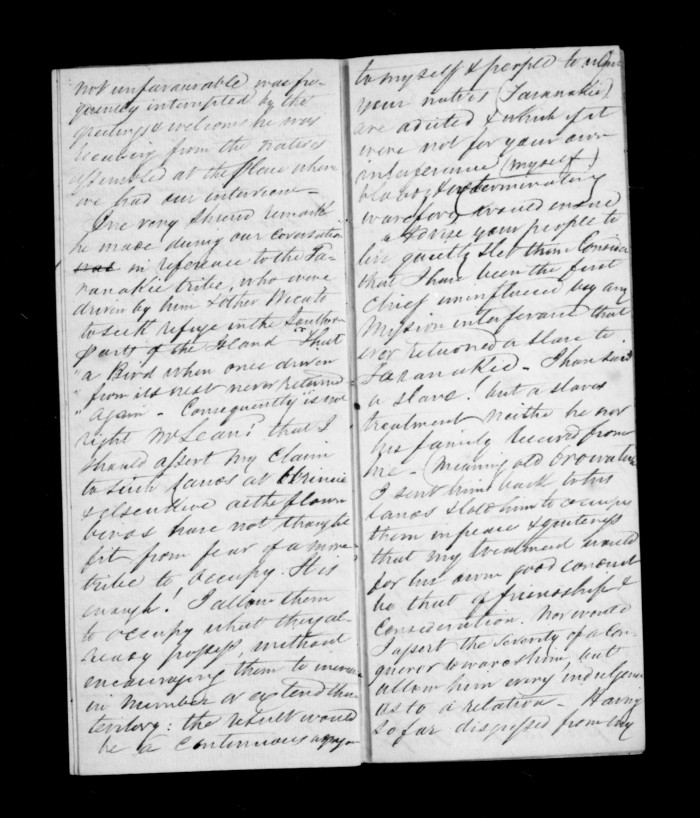 not unfavourable was fre-
quently interrupted by the
greetings & welcome he was
receiving from the natives
assembled at the place where
we had our interview -
One very shrewd remark
he made during our conversation
was in reference to the Ta-
ranakie tribe, who were
driven by him & other Wicato
to seek refuge in the Southern
parts of the Island "That
"a Bird when once driven
"from its nest never returned
"again - Consequently is not
right McLean? that I
should assert my claim
to such lands at
& elsewhere as the flown
birds have not thought
fit from fear of a more
tribe to occupy. It is
enough! I allow them
to occupy what they al-
ready possess, without
encouraging them to increase
in number or extend their
territory: the result would
be a continuous
to my self & people to whom
your natives (Taranakie)
are adicted & which if it
were not for your own
interference (myself)
bloody & exterminating
warfare would ensue
advise your people to
live quietly & let them Consider
that I have been the first
chief uninfluenced by any
Mission interferance that
ever returned a slave to
Taranakie - I have said
a slave! but a slaves
treatment neither he nor
his family received from
me - (meaning old
I sent him back to his
lands & told him to occupy
them in peace & quietness
that my treatment would
for his own good conduct
be that of friendship &
Consideration. Nor would
I assert the severity of a Con-
queror towards him, but
allow him every indulgence
as to a relation - Having
so far digressed from my